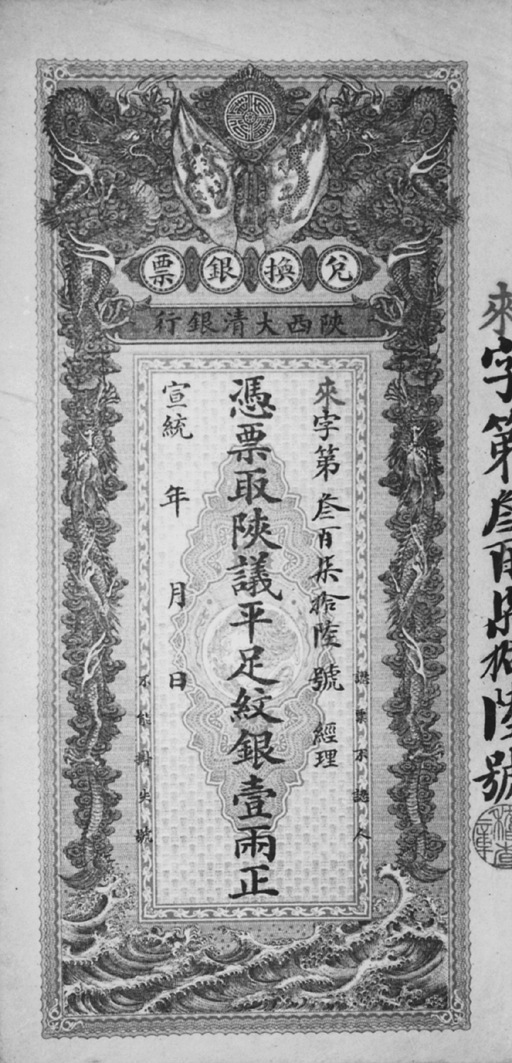 兌換銀票
陝西大清銀行
來字第叁百柒拾陸號 經理
憑票取陝議平足紋銀壹兩正
宣統 年 月 日
認票不認人
不能掛失號
來字第叁百柒拾陸號